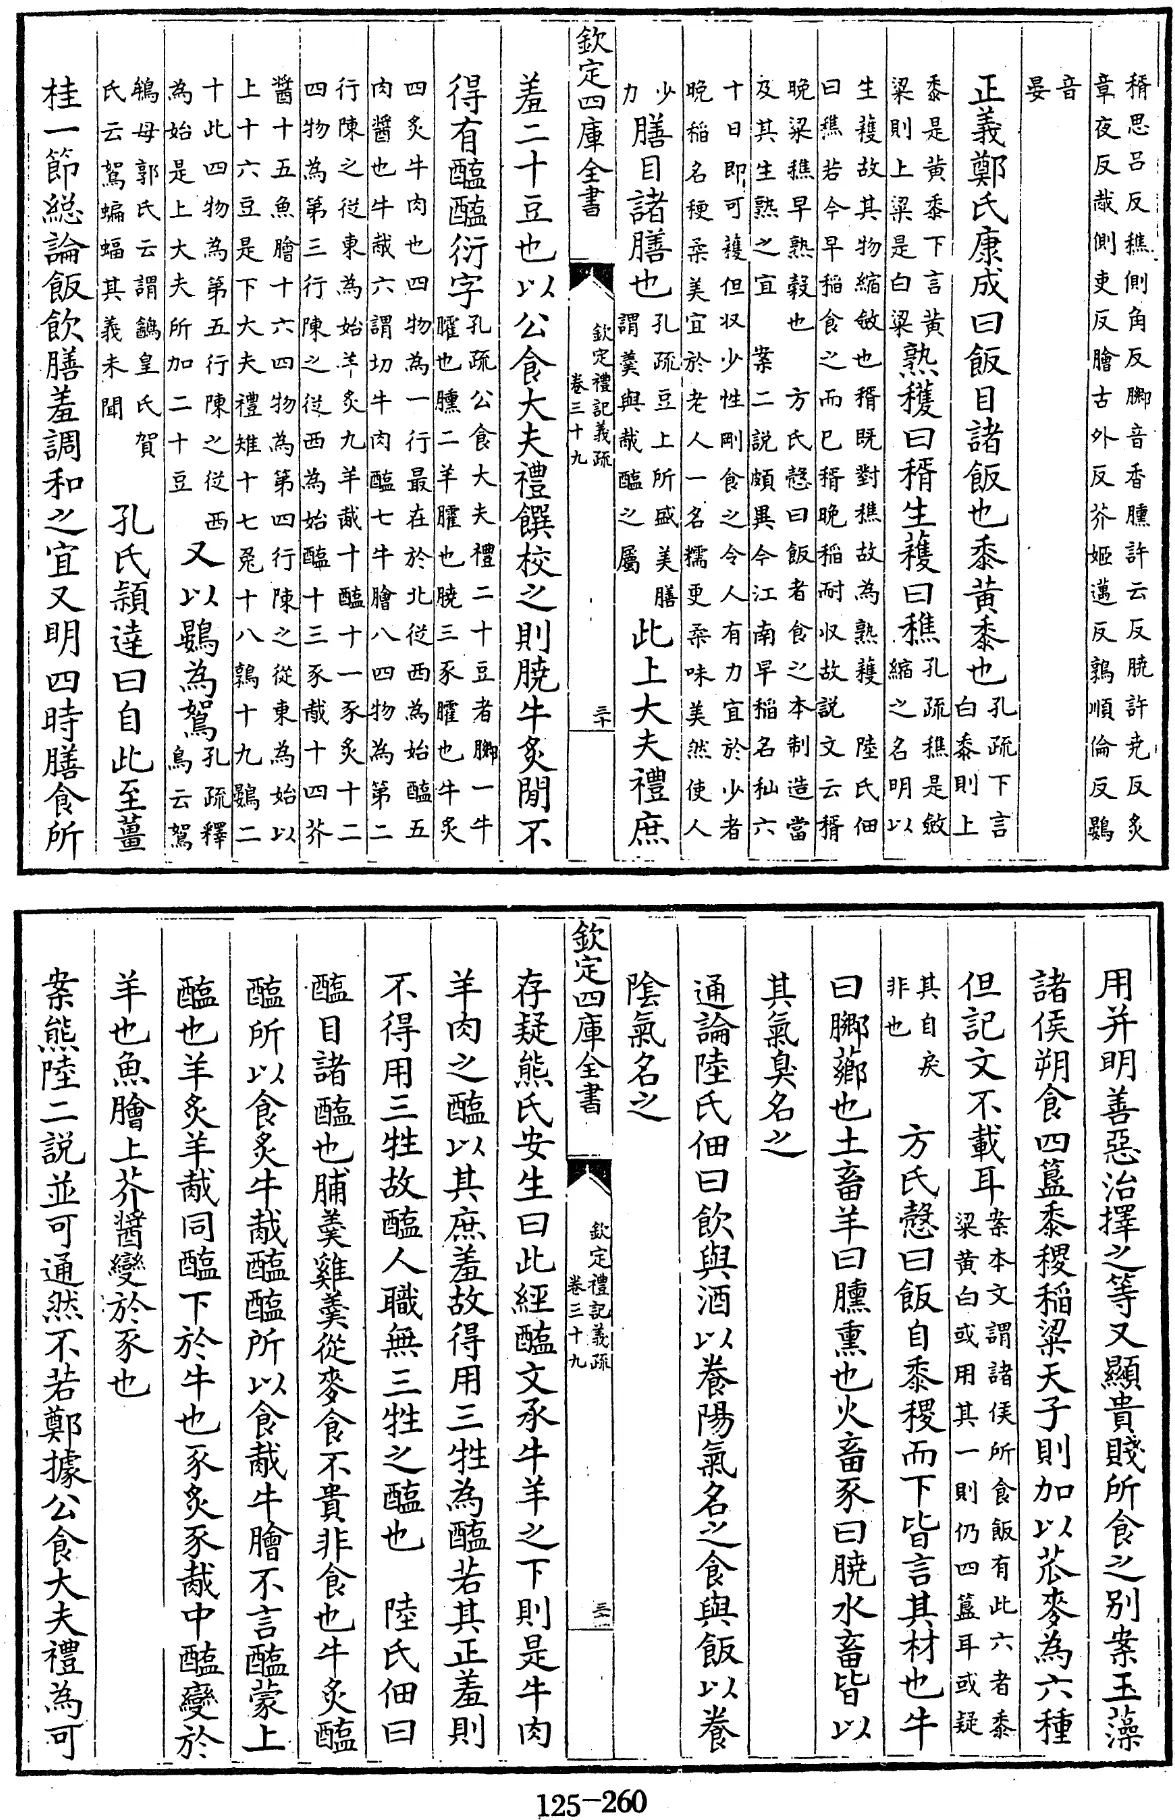 稰思呂反穛側角反膷音香臐許云反膮許堯反炙
章夜反胾側吏反膾古外反芥姬邁反鶉順倫反鷃
音
晏
正義鄭氏康成曰飯目諸飯也黍黃黍也孔疏下言白黍則上
黍是黃黍下言黃粱則上粱是白粱熟穫曰稰生穫曰穛孔疏穛是斂縮之名明以
生穫故其物縮斂也稰既對穛故為熟穫 陸氏佃
曰穛若今早稻食之而已稰晚稻耐収故説文云稰
晚粱穛早熟穀也 方氏慤曰飯者食之本制造當
及其生熟之宜 案二説頗異今江南早稻名秈六
十日即可穫但収少性剛食之令人有力宜於少者
晚稻名稉柔美宜於老人一名糯更柔味美然使人
少力膳目諸膳也孔疏豆上所盛美膳謂羮與胾醢之屬此上大夫禮庶
欽定四庫全書
欽定禮記義疏
卷三十九
三十
羞二十豆也以公食大夫禮饌校之則膮牛炙閒不
得有醢醢衍字孔疏公食大夫禮二十豆者膷一牛臛也臐二羊臛也膮三豕臛也牛炙
四炙牛肉也四物為一行最在於北從西為始醢五
肉醬也牛胾六謂切牛肉醢七牛膾八四物為第二
行陳之從東為始羊炙九羊胾十醢十一豕炙十二
四物為第三行陳之從西為始醢十三豕胾十四芥
醬十五魚膾十六四物為第四行陳之從東為始以
上十六豆是下大夫禮雉十七兎十八鶉十九鷃二
十此四物為第五行陳之從西為始是上大夫所加二十豆 又以鷃為鴽孔疏釋鳥云鴽
鴾母郭氏云謂鶕皇氏賀氏云鴽蝙蝠其義未聞 孔氏頴達曰自此至薑
桂一節総論飯飲膳羞調和之宜又明四時膳食所
用并明善惡治擇之等又顯貴賤所食之别案玉藻
諸侯朔食四簋黍稷稻粱天子則加以苽麥為六種
但記文不載耳案本文謂諸侯所食飯有此六者黍粱黄白或用其一則仍四簋耳或疑
其自戾非也 方氏慤曰飯自黍稷而下皆言其材也牛
曰膷薌也土畜羊曰臐熏也火畜豕曰膮水畜皆以
其氣臭名之
通論陸氏佃曰飲與酒以養陽氣名之食與飯以養
陰氣名之
欽定四庫全書
欽定禮記義疏
卷三十九
三一
存疑熊氏安生曰此經醢文承牛羊之下則是牛肉
羊肉之醢以其庶羞故得用三牲為醢若其正羞則
不得用三牲故醢人職無三牲之醢也 陸氏佃曰
醢目諸醢也脯羮雞羮從麥食不貴非食也牛炙醢
醢所以食炙牛胾醢醢所以食胾牛膾不言醢蒙上
醢也羊炙羊胾同醢下於牛也豕炙豕胾中醢變於
羊也魚膾上芥醬變於豕也
案熊陸二説並可通然不若鄭據公食大夫禮為可
125-260